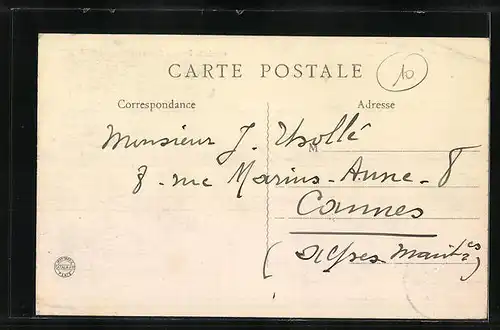 CARTE POSTALE
10
Correspondance
Adresse
Monsieur J.
M
8 - rue Marius - Aune - 8
Cannes
(Alpes Maritmes)